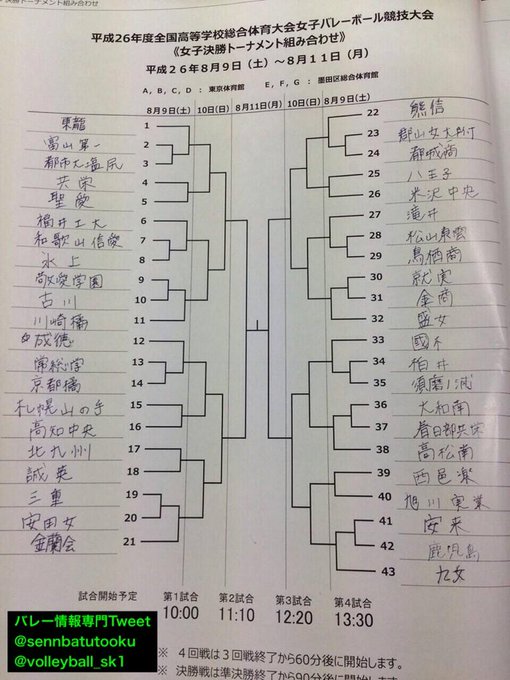 決勝トーナメント組み合わせ
平成26年度全国高等学校総合体育大会女子バレーボール競技大会
《女子決勝トーナメント組み合わせ》
平成２６年８月９日（土）～８月１１日（月）
A，B，C，D ： 東京体育館　E，F，G ： 墨田区総合体育館
8月9日(土) 10日(日) 8月11日(月) 10日(日) 8月9日(土)
東龍 1
富山第一 2
都市大塩尻 3
共栄 4
聖愛 5
福井工大 6
和歌山信愛 7
氷上 8
敬愛学園 9
古川 10
川崎橘 11
成徳 12
常総学 13
京都橘 14
札幌山の手 15
高知中央 16
北九州 17
誠英 18
三重 19
安田女 20
金蘭会 21
22 熊信
23 郡山女大附
24 都城商
25 八王子
26 米沢中央
27 滝井
28 松山東雲
29 鳥栖商
30 就実
31 金商
32 盛女
33 國木
34 柏井
35 須磨ノ浦
36 大和南
37 春日部共栄
38 高松南
39 西邑楽
40 旭川実業
41 安来
42 鹿児島
43 九女
試合開始予定 第1試合 第2試合 第3試合 第4試合
10:00 11:10 12:20 13:30
バレー情報専門Tweet
@sennbatutooku
@volleyball_sk1
※ ４回戦は３回戦終了から60分後に開始します。
※ 決勝戦は準決勝終了から90分後に開始します。